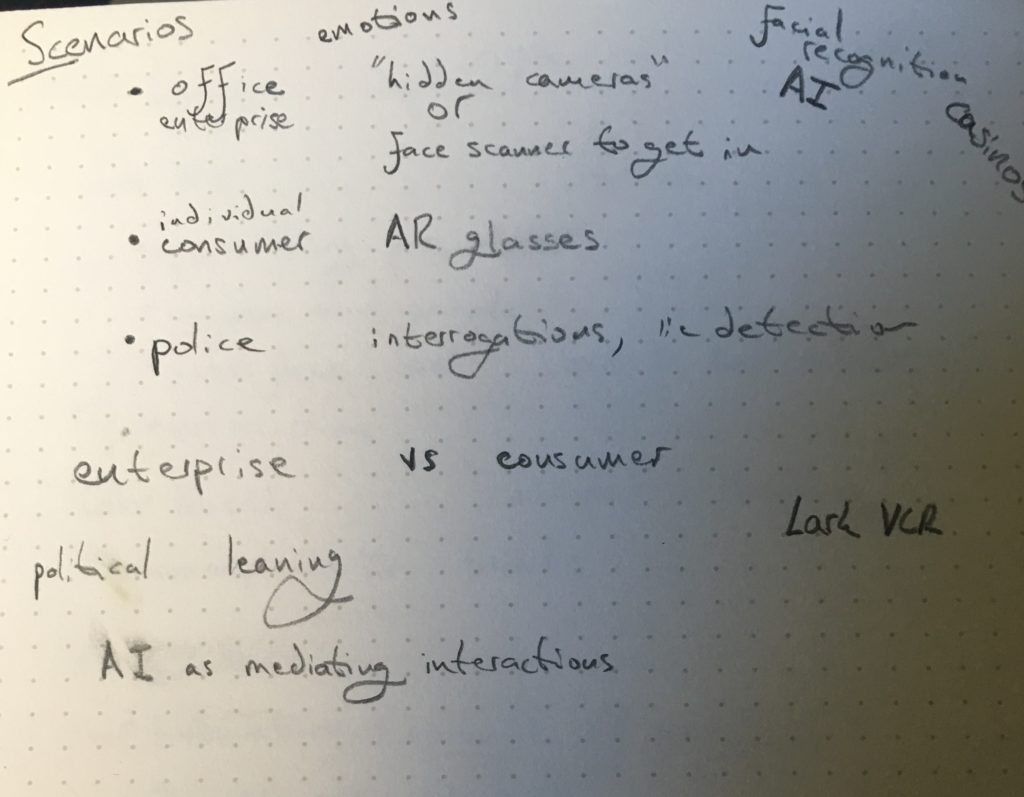 Scenarios
emotions
facial
recognition
AI
casinos
• office
enterprise
"hidden cameras"
or
face scanner to get in
individual
• consumer
AR glasses
• police
interrogations, lie detection
enterprise vs consumer
Lark VCR
political leaning
AI as mediating interactions